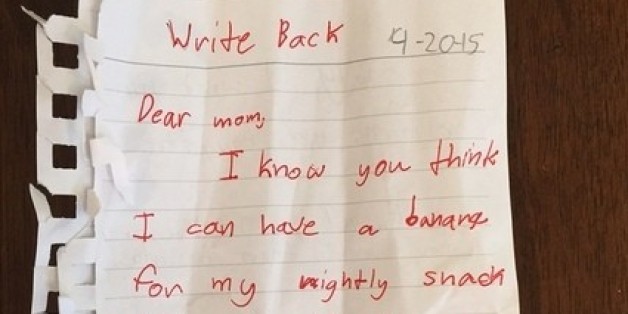 Write Back 4-20-15
Dear mom,
I know you think
I can have a banana
for my nightly snack